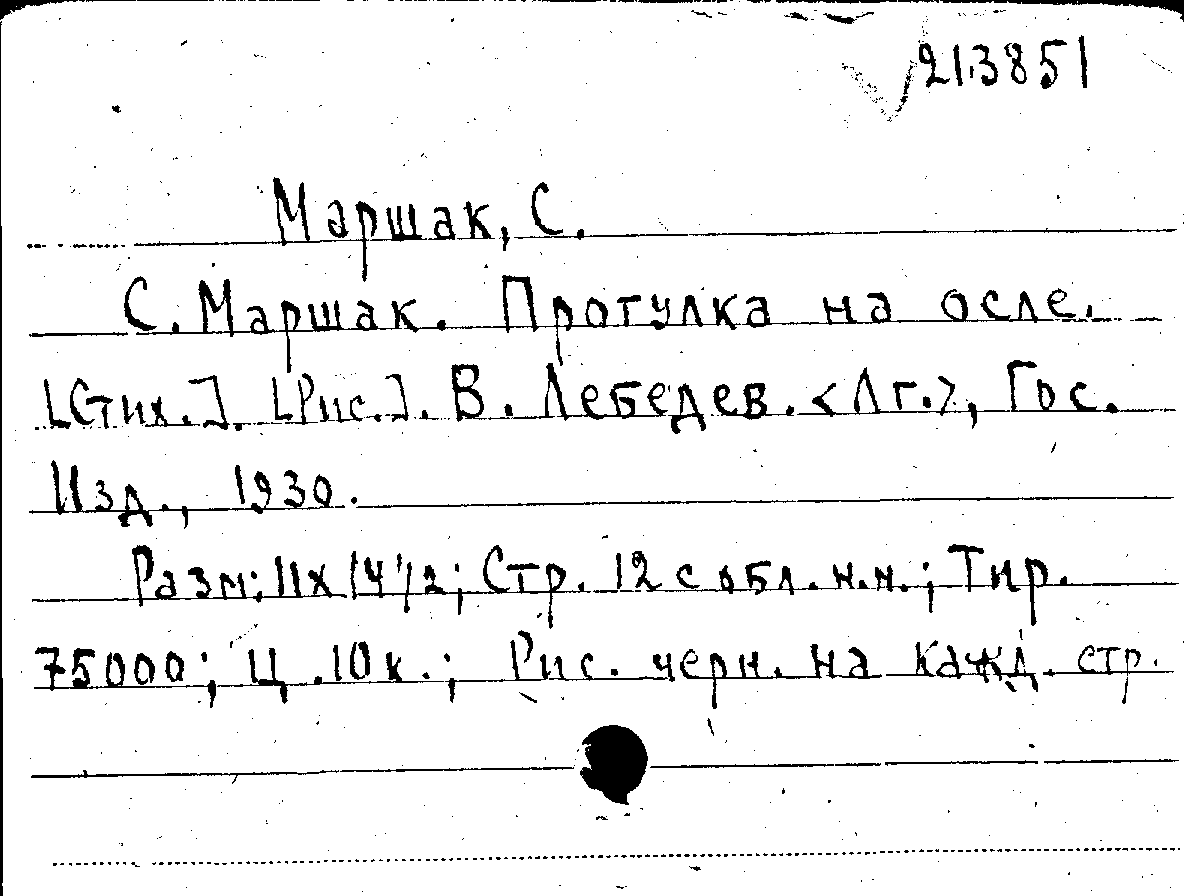 213851
Маршак, С.
С. Маршак. Прогулка на осле.
[Стих.]. [Рис.]. В. Лебедев. <Лг.>, Гос.
Изд., 1930.
Разм: 11x14 1/2; Стр. 12 с обл. н.н.; Тир.
75000; Ц. 10 к.; Рис. черн. на кажд. стр.